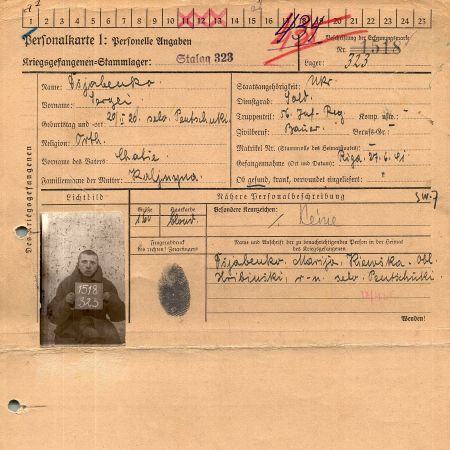 1 2 3 4 5 6 7 8 9 10 11 12 13 14 15 16 17 18 19 20 21 22 23 24 25
Personalkarte I: Personelle Angaben
Beschriftung der Erkennungsmarke
Nr. 1518
Kriegsgefangenen-Stammlager: Stalag 323
Lager: 323
Des Kriegsgefangenen
Name: Djabenko
Vorname: Sergei
Geburtstag und -ort: selo
Religion: Orth.
Vorname des Vaters:
Familienname der Mutter:
Staatsangehörigkeit: Ukr.
Dienstgrad: Sold.
Truppenteil: 56. Inf. Reg. Komp. usw.: –
Zivilberuf: Bauer Berufs-Gr.: –
Matrikel Nr. (Stammrolle des Heimatstaates): –
Gefangennahme (Ort und Datum): Riga, 27.6.41
Ob gesund, krank, verwundet eingeliefert:
Lichtbild
Nähere Personalbeschreibung
Größe
Haarfarbe
160
blond
Besondere Kennzeichen:
Keine
Fingerabdruck
des rechten! Zeigefingers
Name und Anschrift der zu benachrichtigenden Person in der Heimat
des Kriegsgefangenen
Djabenko Marija, Kiewska Obl.
selo
1518
323
Wenden!